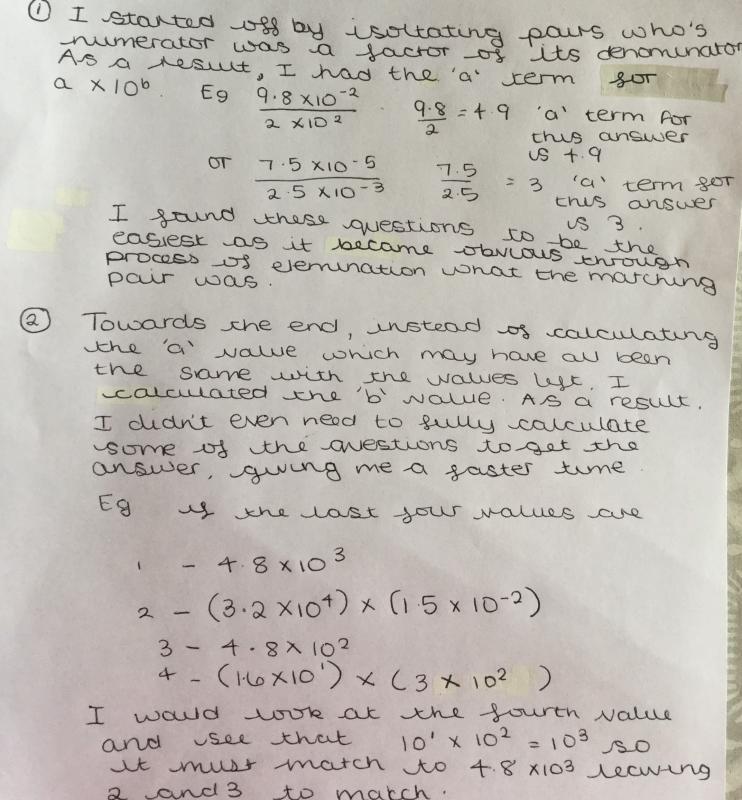 ① I started off by isoltating pairs who's
numerator was a factor of its denominator
As a result, I had the 'a' term for
a x 10ᵇ. Eg 9.8 x10⁻² / 2 x10² 9.8/2 = 4.9 'a' term for
this answer
is 4.9
or 7.5 x10⁻⁵ / 2.5 x10⁻³ 7.5/2.5 = 3 'a' term for
this answer
is 3.
I found these questions to be the
easiest as it became obvious through
process of elemination what the matching
pair was.
② Towards the end, instead of calculating
the 'a' value which may have all been
the same with the values left, I
calculated the 'b' value. As a result,
I didn't even need to fully calculate
some of the questions to get the
answer, giving me a faster time.
Eg if the last four values are
1 - 4.8 x10³
2 - (3.2 x10⁴) x (1.5 x 10⁻²)
3 - 4.8 x 10²
4 - (1.6 x10¹) x (3 x 10²)
I would look at the fourth value
and see that 10¹ x 10² = 10³ so
it must match to 4.8 x10³ leaving
2 and 3 to match.